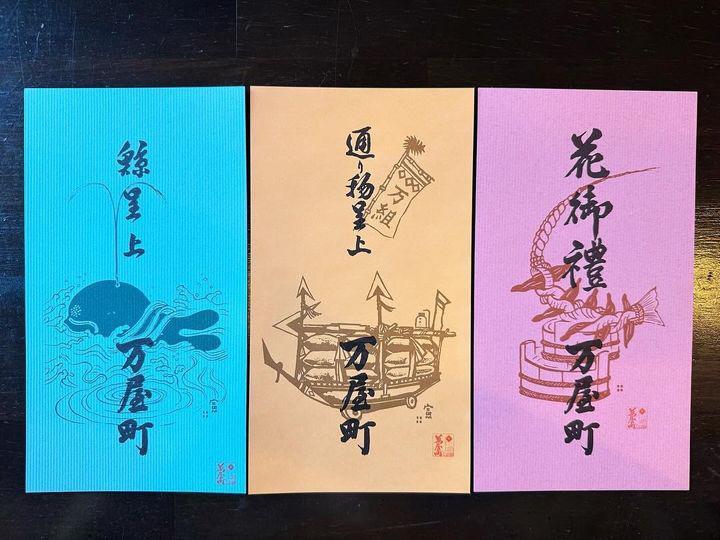 鯨呈上
万屋町
通り物呈上
万組
万屋町
花御禮
万屋町